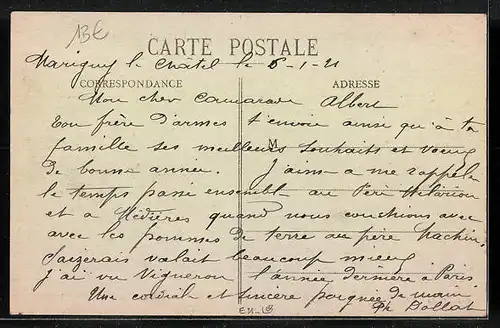 13€
CARTE POSTALE
Marigny le Châtel le 6-1-21
CORRESPONDANCE
ADRESSE
Mon cher Camarade Albert
Ton frère d'armes t'envoie ainsi qu'à ta
famille ses meilleurs souhaits et voeux
M
de bonne année. J'aime a me rappeler
le temps passé ensemble au Père Hilarion
et a Médières quand nous couchions avec
avec les pommes de terre au père Machin.
Saizerais valait beaucoup mieux
j'ai vu Vigneron l'année dernière à Paris
Une cordiale et sincère poignée de main
Ph Dollat